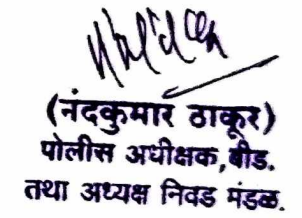 (नंदकुमार ठाकूर)
पोलीस अधीक्षक,बीड.
तथा अध्यक्ष निवड मंडळ.